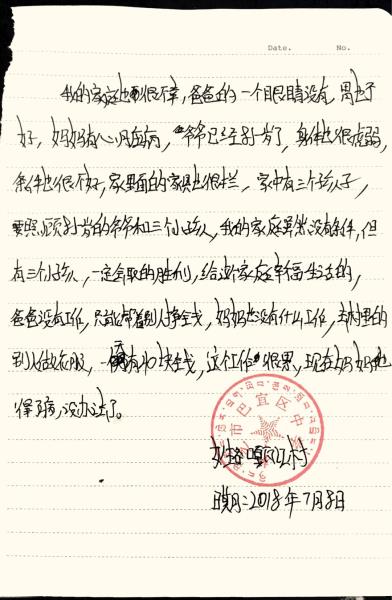 Date. No.
我的家庭也很不幸，爸爸的一个眼睛没有，胃也不
好，妈妈有心脏病，爷爷已经 岁了，身体也很虚弱，
条件也很不好，家里面的家具也很烂，家中有三个孩子，
要照顾 岁的爷爷和三个小孩，我的家庭虽然没有条件，但
有三个小孩，一定会取的胜利，给这个家庭幸福生活的，
爸爸没有工作，只能帮着别人挣钱，妈妈也没有什么工作，去村里的
别人做衣服，一 有10块钱，这个工作很累，现在妈妈也
得病，没办法了。
市巴宜区中
村
日期：2018年7月8日